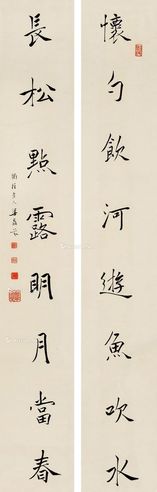 懷勺飲河遊魚吹水
長松點露明月當春